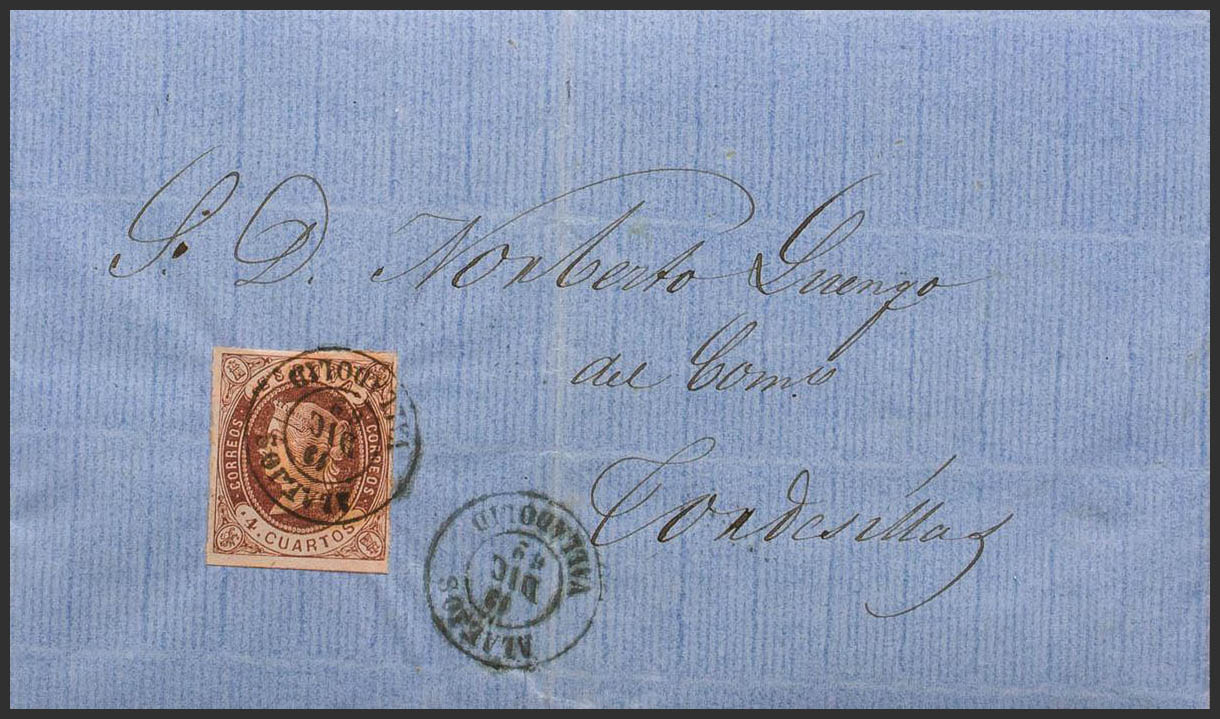 S. D. Norberto Luengo
del Comº
Tordesillas
CORREOS
CORREOS
4. CUARTOS
ALAEJOS
DIC
VALLADOLID
ALAEJOS
19
DIC
62
VALLADOLID